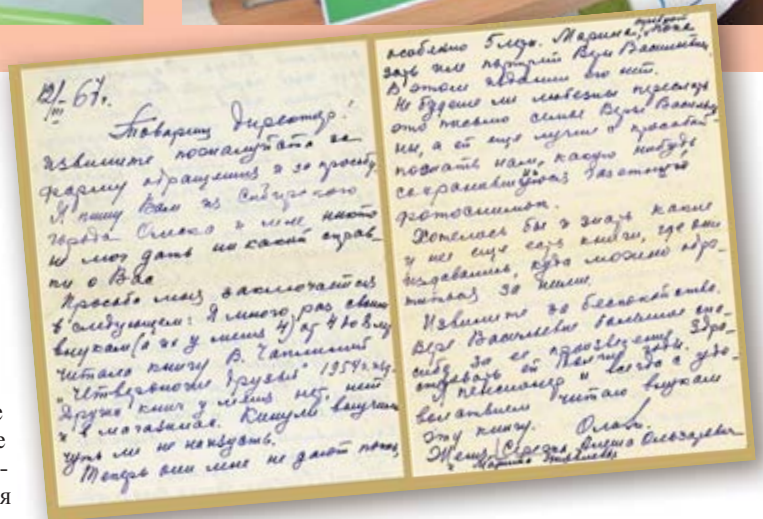 12/III-67г.
Товарищ директор!
Извините пожалуйста за
форму обращения и за просьбу.
Я пишу Вам из Сибирского
города Омска и мне никто
не мог дать ни какой справ-
ки о Вас
Просьба моя заключается
в следующем: Я много раз своим
внукам (а их у меня 4) от 4 до 8 лет
читала книгу В. Чаплиной
"Четвероногие друзья" 1958 г. изд.
Других книг у меня нет, нет
и в магазинах. Книгу выучили
чуть ли не наизусть.
Теперь они мне не дают покоя,
особенно близн. Марина,
зать им портрет Веры Васильевны.
В этом издании его нет.
Не будете ли любезны переслать
это письмо самой Вере Василье-
ны, а ей еще лучше с просьбой
послать нам, какую нибудь
сохранившуюся газетную
фотоснимок.
Хотелось бы знать какие
у нее еще есть книги, где они
издавались, куда можно обра-
титься за ними.
Извините за беспокойство.
Вере Васильевне большое спа-
сибо за ее произведения. Здра-
ствовать ей долгие годы.
Я пенсионер и всегда с удо-
вольствием читаю внукам
эту книгу.
Марина
е
е
-
я